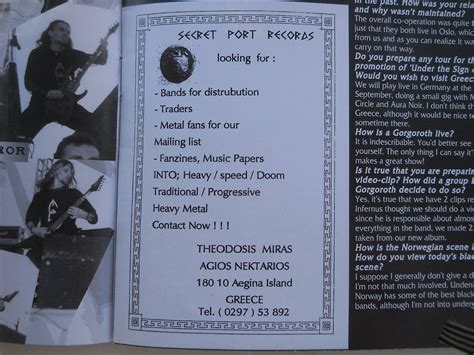 ROR
SECRET PORT RECORDS
looking for :
- Bands for distrubution
- Traders
- Metal fans for our
Mailing list
- Fanzines, Music Papers
INTO; Heavy / speed / Doom
Traditional / Progressive
Heavy Metal
Contact Now ! ! !
THEODOSIS MIRAS
AGIOS NEKTARIOS
180 10 Aegina Island
GREECE
Tel. ( 0297 ) 53 892
in the past. How was your
and why wasn't maintained?
The overall co-operation was quite
just that they both live in Oslo, which
from us and as you can realize it wa
carry on that way.
Do you prepare any tour for the
promotion of 'Under the Sign
Would you wish to visit Greec
We will play live in Germany at the
September, doing a small gig with M
Circle and Aura Noir. I don't think th
Greece, although it would be nice t
sometime there.
How is a Gorgoroth live?
It is indescribable. You'd better see
yourself. The only thing I can say it
makes a great show!
Is it true that you are preparing
video-clip? How did a group
Gorgoroth decide to do so?
Yes, it's true that we have 2 clips re
Infernus thought we should do a vi
since he is responsible about almos
everything in the band, we made
taken from our new album.
How is the Norwegian scene
How do you view today's bla
scene?
I suppose I generally don't give a d
I'm not that much involved. Undeni
Norway has some of the best black
bands, although I'm not into under